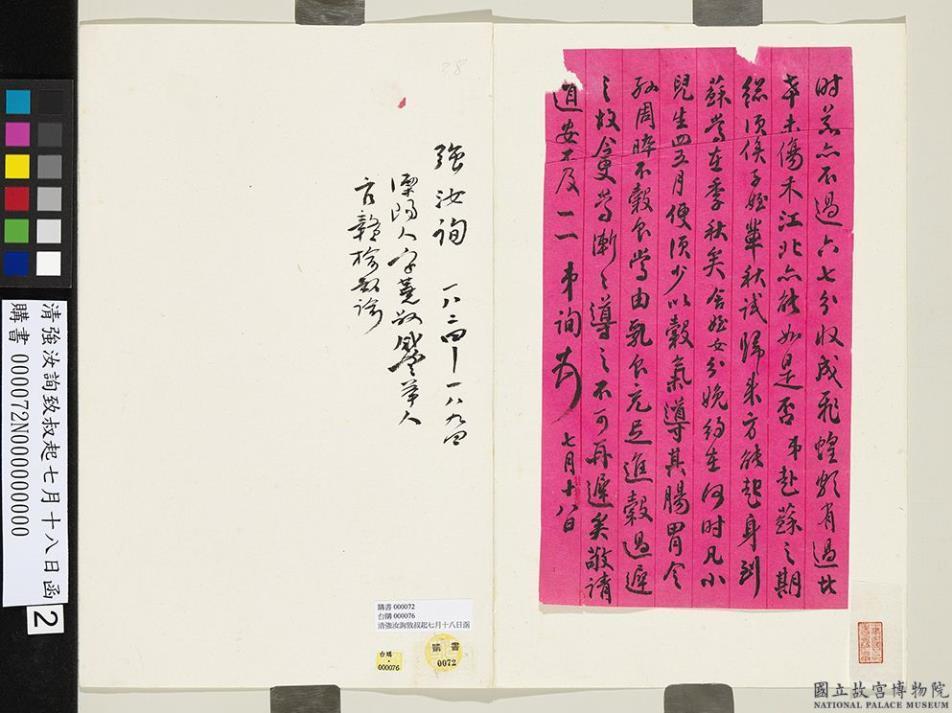 时若亦不過六七分收成飛蝗頗有過此
幸未傷禾江北亦能如是否弟赴蘇之期
總須俟子姪輩秋試歸來方能起身到
蘇當在季秋矣舍姪女分娩約在何時凡小
兒生四五月便須少以穀氣導其腸胃令
孫周晬不穀食當由乳食充足進穀過遲
之故今更當漸之導之不可再遲矣敬請
道安不及二二 弟詢頓 七月十八日
強汝詢 一八二四—一八九四
溧陽人字蕘叔咸豐舉人
官贛榆教諭
28
清強汝詢致叔起七月十八日函
購書 000072N000000000
2
購書 000072
台購 000076
清強汝詢致叔起七月十八日函
台購
000076
購書
0072
國立故宮博物院
NATIONAL PALACE MUSEUM